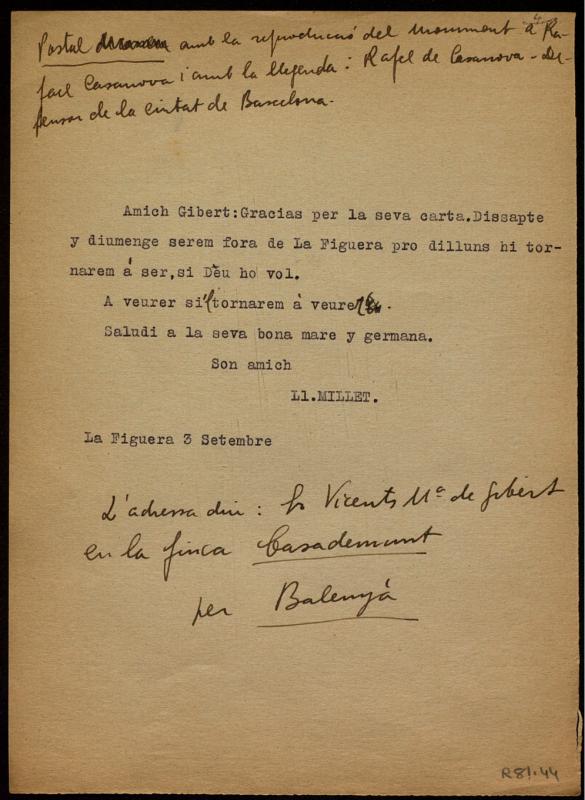 Postal amb la reproducció del monument a Ra-
fael Casanova i amb la llejenda: Rafel de Casanova - De-
fensor de la ciutat de Barcelona.
Amich Gibert:Gracias per la seva carta.Dissapte
y diumenge serem fora de La Figuera pro dilluns hi tor-
narem á ser,si Dèu ho vol.
A veurer si'l tornarem à veurer.
Saludi a la seva bona mare y germana.
Son amich
Ll.MILLET.
La Figuera 3 Setembre
L'adressa diu: Vicents Mª de Gibert
en la finca Casademunt
per Balenyà
R81.44